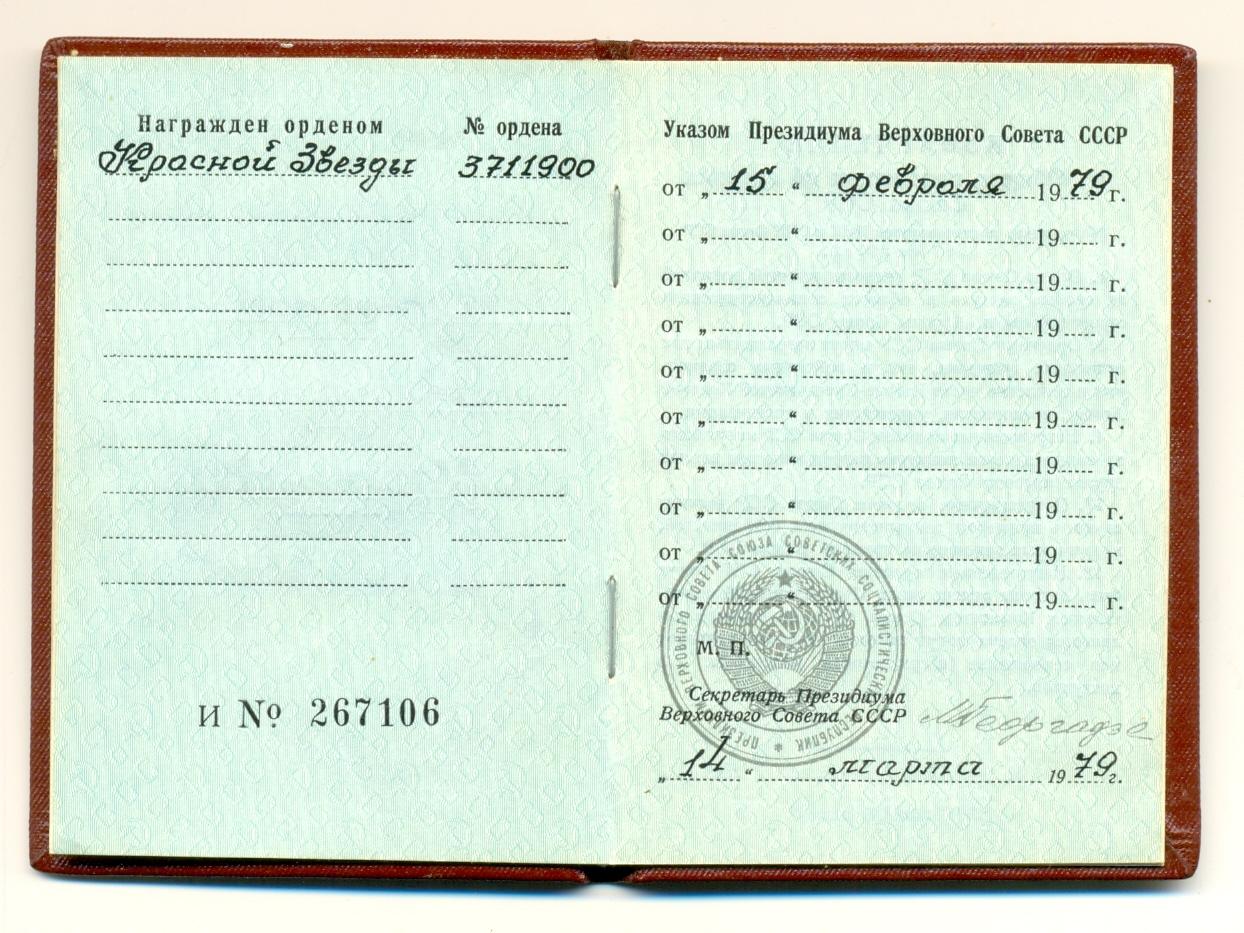 Награжден орденом № ордена
Красной Звезды 3711900
И № 267106
Указом Президиума Верховного Совета СССР
от „ 15 “ февраля 1979 г.
от „ “ 19 г.
от „ “ 19 г.
от „ “ 19 г.
от „ “ 19 г.
от „ “ 19 г.
от „ “ 19 г.
от „ “ 19 г.
от „ “ 19 г.
от „ “ 19 г.
М. П.
Секретарь Президиума
Верховного Совета СССР МГеоргадзе
„ 14 “ марта 1979 г.
ПРЕЗИДИУМ ВЕРХОВНОГО СОВЕТА СОЮЗА СОВЕТСКИХ СОЦИАЛИСТИЧЕСКИХ РЕСПУБЛИК